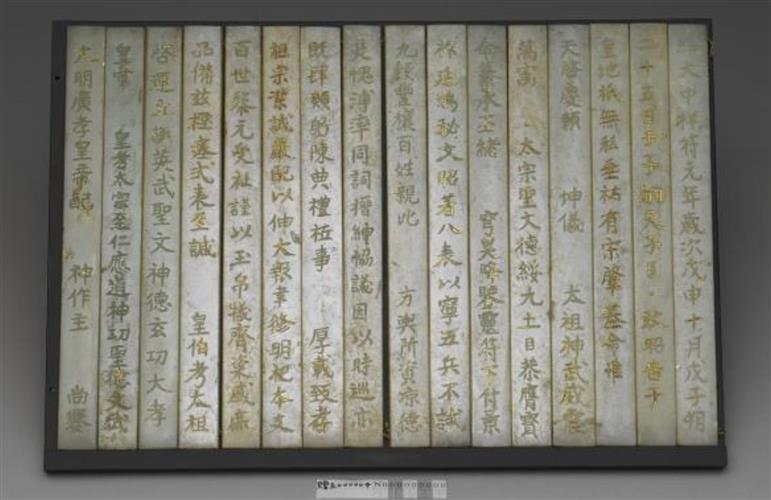 維大中祥符元年歲次戊申十月戊子朔
二十五日壬子嗣天子臣敢昭告于
皇地祇無私垂祐有宋肇基命惟
天啓慶賴 坤儀 太祖神武威震
萬寓 太宗聖文德綏九土臣恭膺寶
命纂承丕緒 穹昊降祥靈符下付景
祚延鴻秘文昭著八表以寧五兵不試
九穀豐穰百姓親比 方輿所資涼德
是愧溥率同詞搢紳協議因以時巡亦
既肆類躬陳典禮祗事 厚載致孝
祖宗潔誠嚴配以伸大報聿修明祀本支
百世黎元受祉謹以玉帛犧齊粢盛庶
品備茲禋瘞式表至誠 皇伯考太祖
啓運立極英武聖文神德玄功大孝
皇帝 皇考太宗至仁應道神功聖德文武
大明廣孝皇帝配 神作主 尚饗